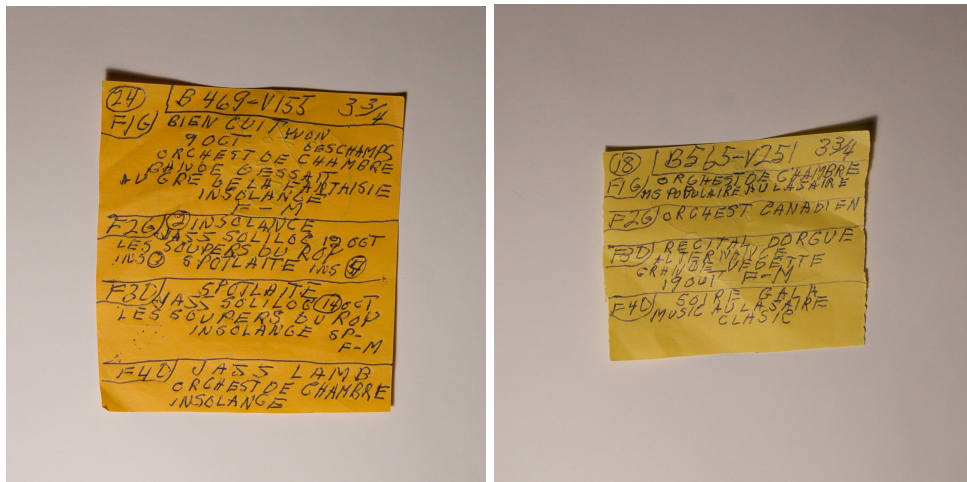 24 B 469-V155 3 3/4
F1G BIEN CUIT YVON
9 OCT DESCHAMPS
ORCHEST DE CHAMBRE
BANDE DESSAIT
AU GRE DE LA FANTAISIE
INSOLANGE
F-M
F2G 2 INSOLANGE
JASS SOLILOC 19 OCT
LES SOUPERS DU ROY
INS SPOTLAITE INS
F3D SPOTLAITE
JASS SOLILOC 14 OCT
LES SOUPERS DU ROY
INSOLANGE SP-
F-M
F4D JASS LAMB
ORCHEST DE CHAMBRE
INSOLANGE
18 B565-V251 3 3/4
F1G ORCHEST DE CHAMBRE
MS POPULAIRE AU LASAIRE
F2G ORCHEST CANADIEN
F3D RECITAL DORGUE
ALTERNANCE
GRANDE VEDETTE
19 OUT F-M
F4D SOIRE GALA
MUSIC AU LASAIRE
CLASIC